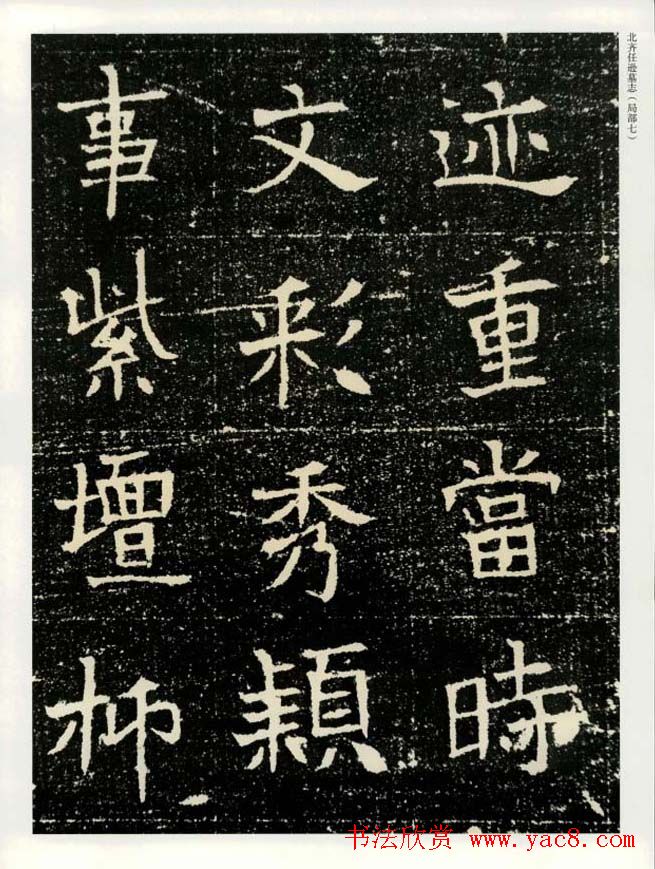 北齐任逊墓志（局部七）
迹重當時
文彩秀穎
事紫壇柳
书法欣赏 www.yac8.com